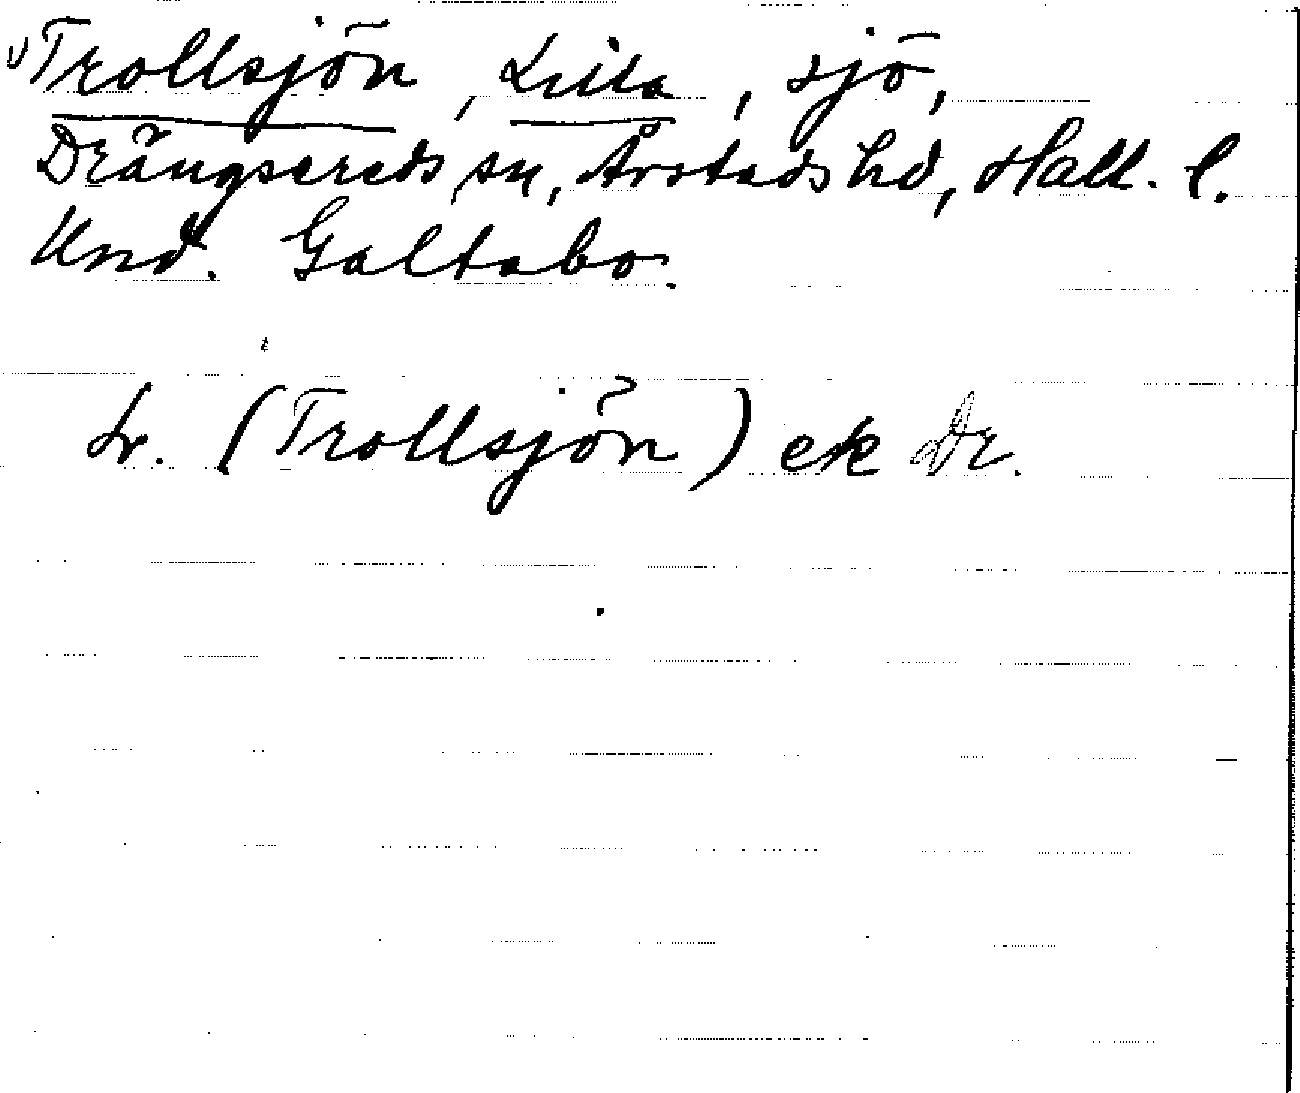 Trollsjön, Lilla, sjö,
Drängsereds sn, Årstads hd, Hall. l.
Und. Galtabo.
Lr. (Trollsjön) ek Dr.